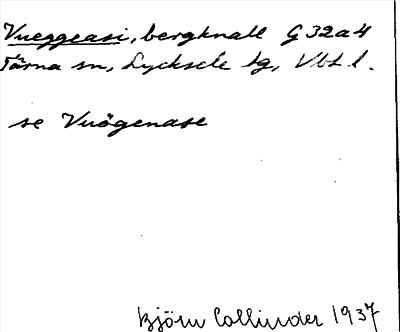 Vueggeasi, bergknall G 32a4
Tärna sn, Lycksele lg, Vbt l.
se Vuögenase
Björn Collinder 1937